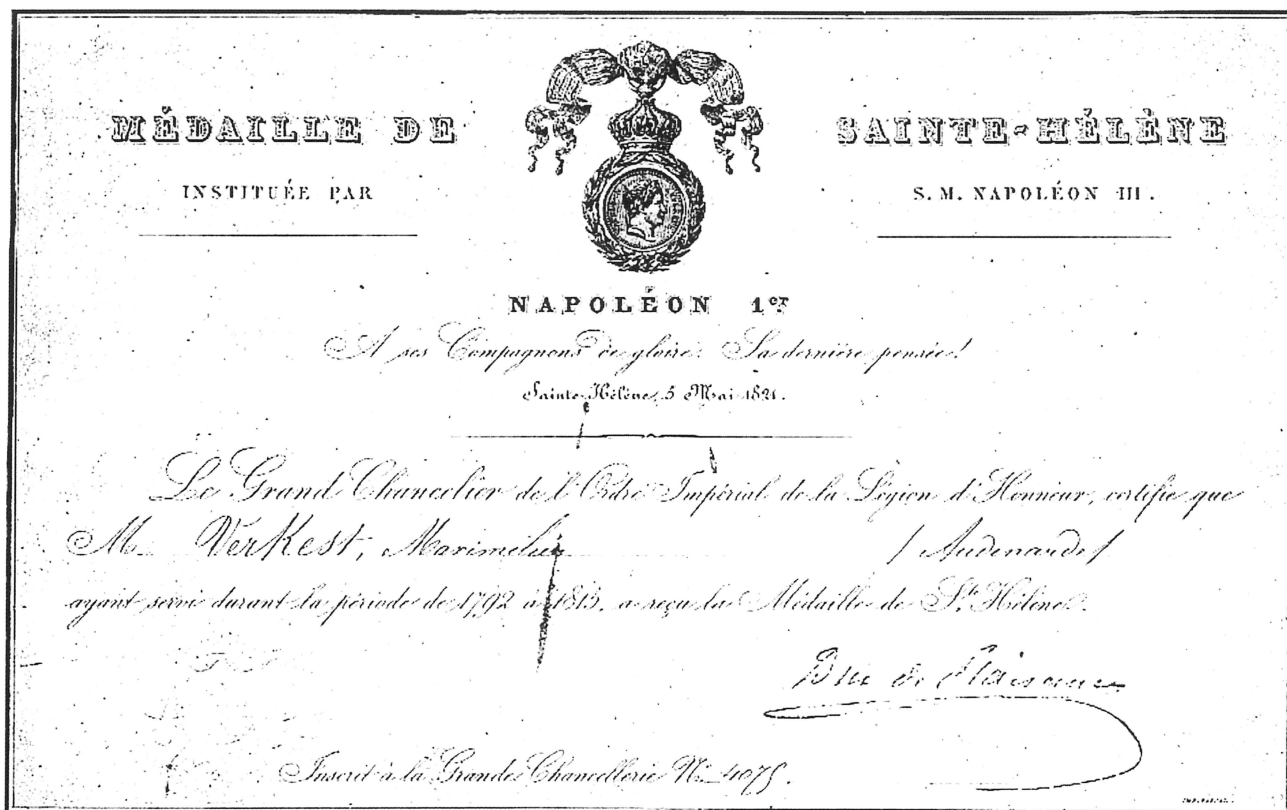 MÉDAILLE DE SAINTE-HÉLÈNE
INSTITUÉE PAR S. M. NAPOLÉON III.
NAPOLÉON 1er
A ses Compagnons de gloire, Sa dernière pensée!
Sainte-Hélène, 5 Mai 1821.
Le Grand Chancelier de l'Ordre Impérial de la Légion d'Honneur, certifie que
M. VerKest, Maximelien / Audenarde /
ayant servi durant la période de 1792 à 1815, a reçu la Médaille de Ste Hélène.
Duc de Plaisance
Inscrit à la Grande Chancellerie No. 4075.